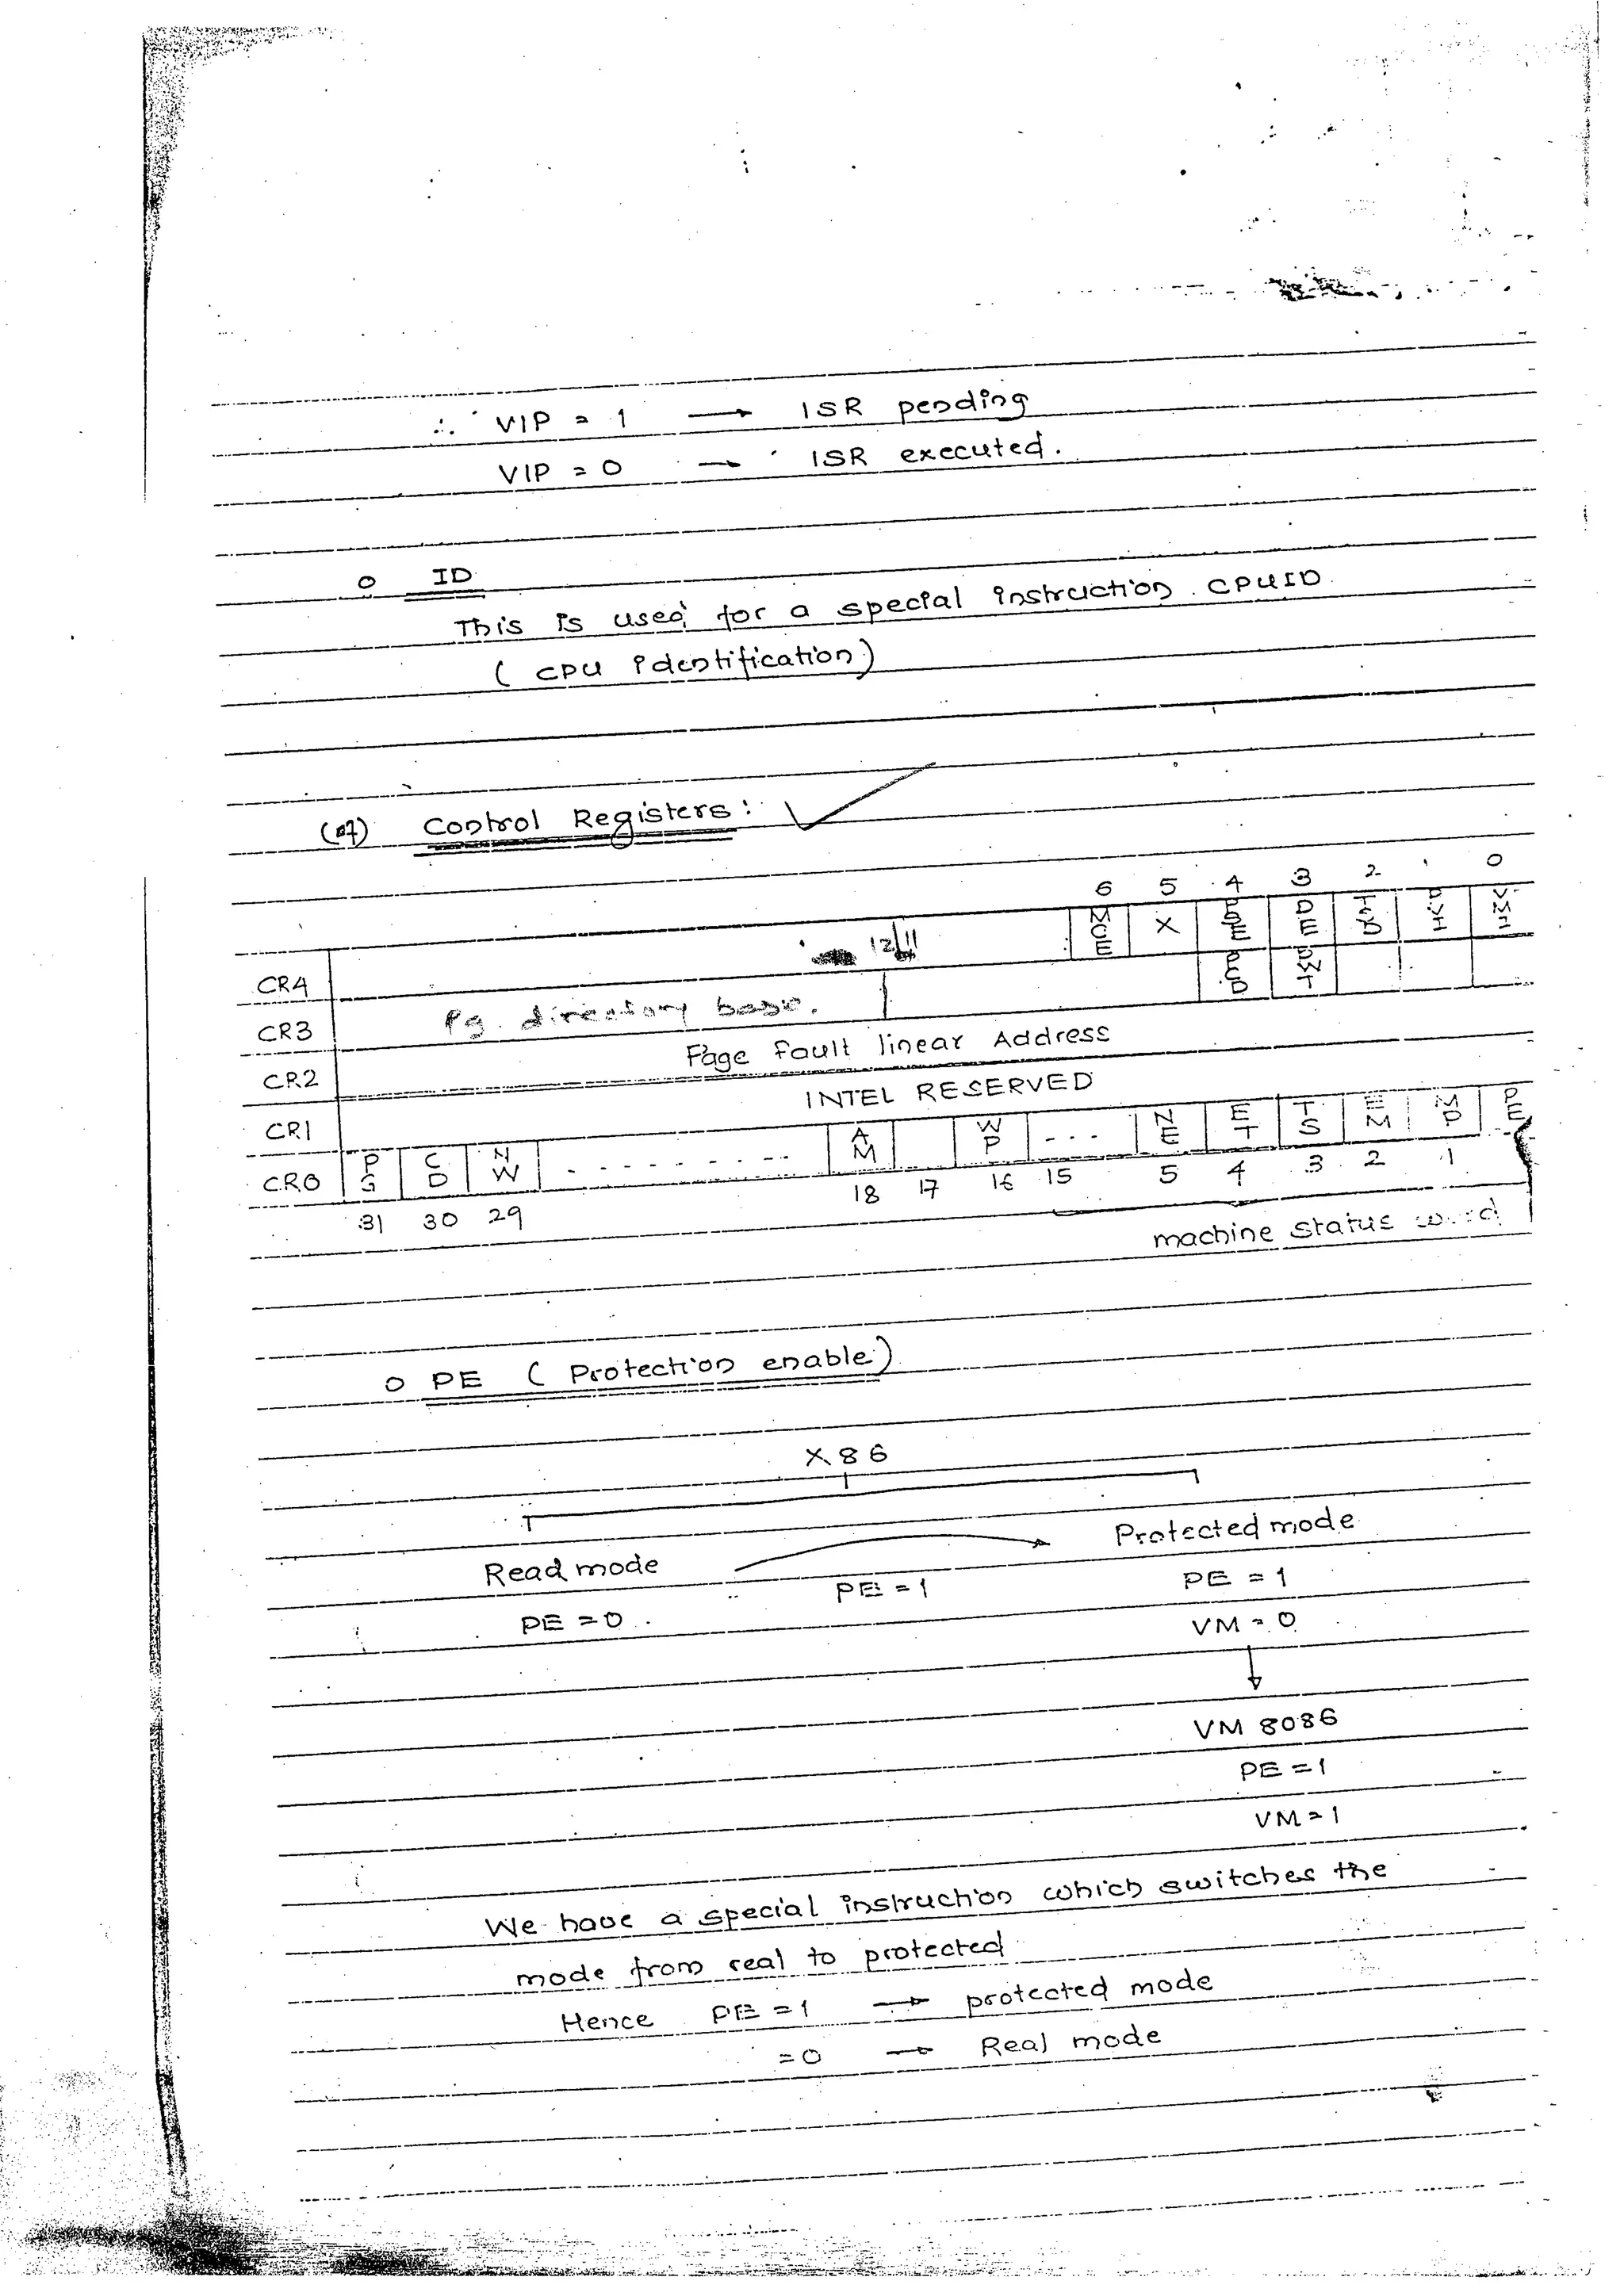 ∴ VIP = 1 → ISR pending
VIP = 0 → ISR executed.
o ID
This is used for a special instruction CPUID
( CPU identification )
Control Registers :
6 5 4 3 2 1 0
CR4 12 11 MCE X PSE DE TSD PVI VMI
CR3 Pg. directory base. PCD PWT
CR2 Page fault linear Address
CR1 INTEL RESERVED
CR0 PG CD NW - - - - - - - - AM WP - - - NE ET TS EM MP PE
31 30 29 18 17 16 15 5 4 3 2 1
machine status word
o PE ( Protection enable )
X86
Read mode Protected mode
PE = 0 . PE = 1 PE = 1
VM = 0
VM 8086
PE = 1
VM = 1
We have a special instruction which switches the
mode from real to protected
Hence PE = 1 → protected mode
= 0 → Real mode